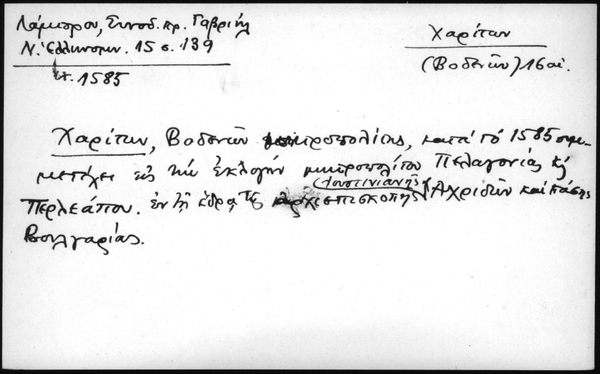 Λάμπρου, Συνοδ. πρ. Γαβριήλ
Ν. Ἑλληνομν. 15 σ. 139
ἔτ. 1585
Χαρίτων
(Βοδενῶν) 16 αἰ.
Χαρίτων, Βοδενῶν μητροπολίτης, κατὰ τὸ 1585 συμ-
μετέχει εἰς τὴν ἐκλογὴν μητροπολίτου Πελαγονίας κὶ
Περλεάπου. ἐν τῇ ἕδρᾳ τῆς ἀρχιεπισκοπῆς Ἰουστινιανῆς Ἀχριδῶν καὶ πάσης
Βουλγαρίας.